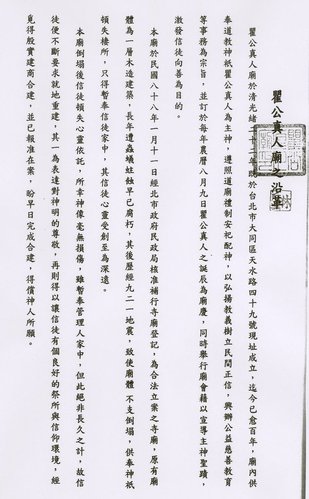 瞿公真人廟之沿革
瞿公真人廟於清光緒二十二年時於台北市大同區天水路四十九號現址成立，迄今已愈百年，廟內供
奉道教神祇瞿公真人為主神，遵照道廟禮制安祀配神，以弘揚教義樹立民間正信，興辦公益慈善教育
等事務為宗旨，並訂於每年農曆八月九日瞿公真人之誕辰為廟慶，同時舉行廟會藉以宣導主神聖蹟，
激發信徒向善為目的。
本廟於民國八十八年一月十一日經北市政府民政局核准補行寺廟登記，為合法立案之寺廟，原有廟
體為一層木造建築，長年遭蟲蟻蛀蝕早已腐朽，其後歷經九二一地震，致使廟體不支倒塌，供奉神祇
頓失棲所，只得暫奉信徒家中，其信徒心靈受創至為深遠。
本廟倒塌後信徒頓失心靈依託，所幸神像毫無損傷，雖暫奉管理人家中，但此絕非長久之計，故信
徒便不斷要求就地重建，其一為表達對神明的尊敬，再則得以讓信徒有個良好的祭所與信仰環境，經
覓得殷實建商合建，並已報准在案，盼早日完成合建，得償神人所願。